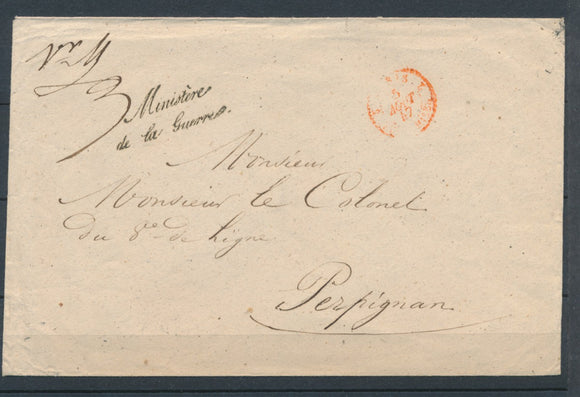 Ministère
de la Guerre.
5
AOUT
47
Monsieur
Monsieur le Colonel
du 8e de Ligne
Perpignan